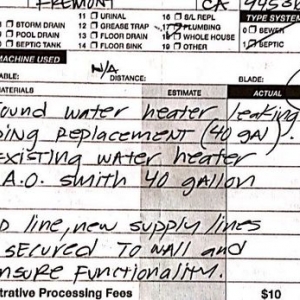 FREMONT CA 94538
11 URINAL 16 B/L REPL TYPE SYSTEM
11 STORM DRAIN 12 GREASE TRAP 17 PLUMBING 0 SEWER
POOL DRAIN 13 FLOOR DRAIN WHOLE HOUSE SEPTIC
SEPTIC TANK 14 FLOOR SINK 19 OTHER
MACHINE USED
N/A
ABLE: DISTANCE: BLADE:
MATERIALS ESTIMATE ACTUAL
ound water heater leaking
ing replacement (40 gal)
existing water heater
A.O. Smith 40 gallon
D line, new supply lines
secured to wall and
nsure functionality.
trative Processing Fees $10